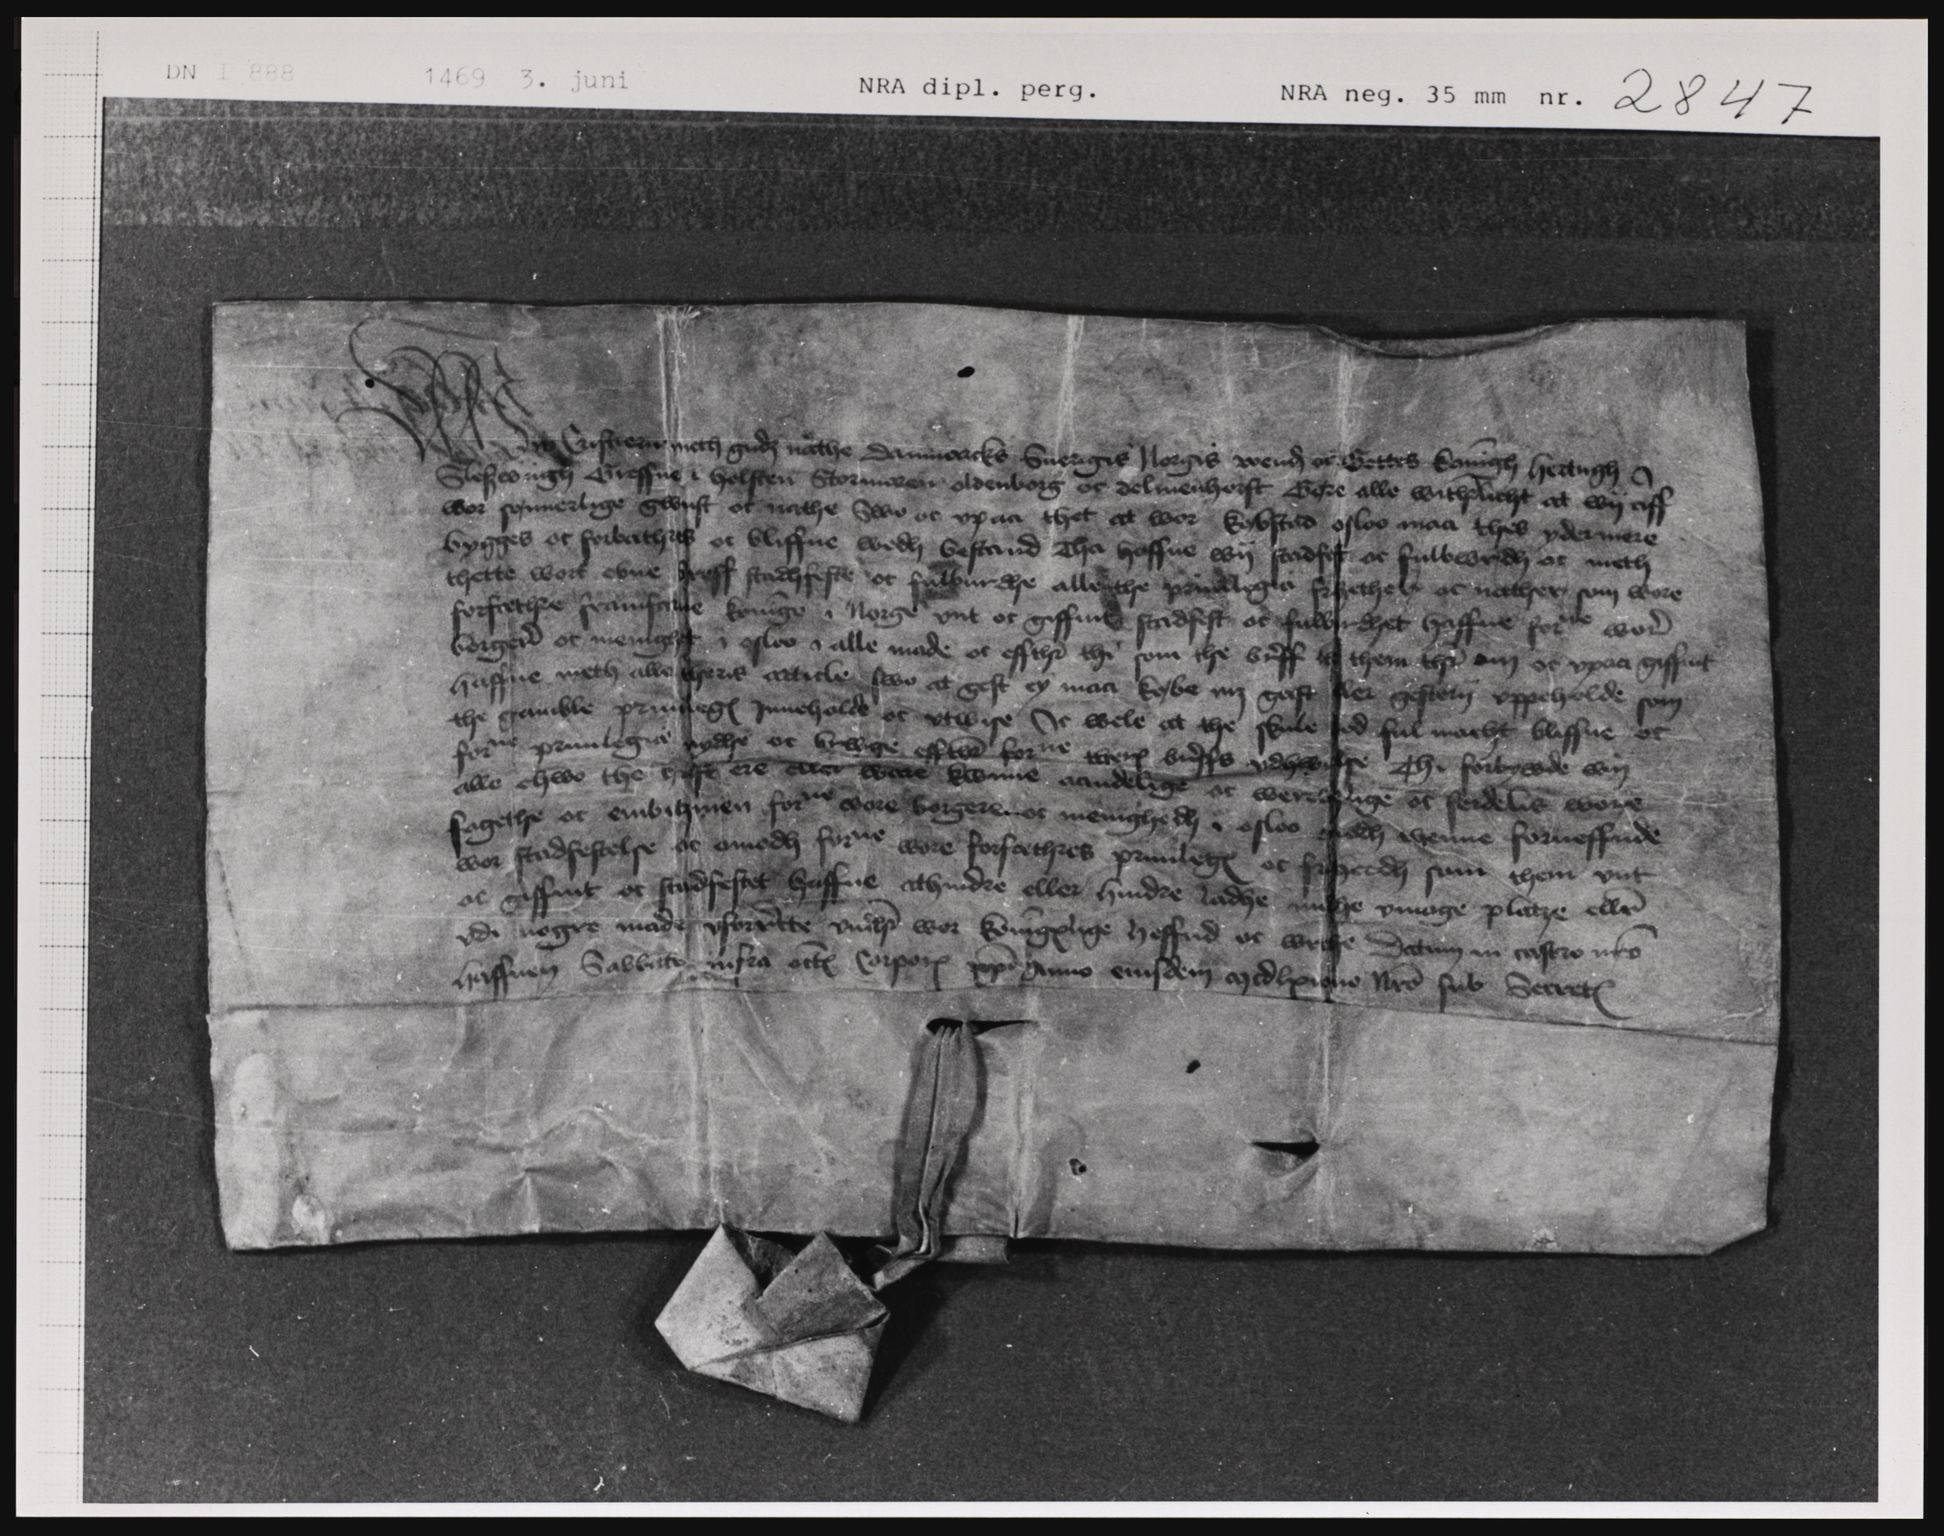 DN I 888 1469 3. juni NRA dipl. perg. NRA neg. 35 mm nr. 2847
Wij Cristiern meth gudz nathe Danmarcks Suerigis Norgis wend oc Gottes koningh hertugh i
Sleszwigh Greffue i Holsten Stormaren oldenborg oc delmenhorst Gøre alle witherlicht at wij aff
wor synnerlige gwnst oc nathe Swo oc vpaa thet at wor købstad osloo maa thes ydermere
bygges oc forbæthres oc bliffue wedh bestand Tha haffue wij stadfest oc fulbwrdh oc meth
thette wort obne breff stadhfeste oc fulburdhe alle the priuilegia fryether oc nather som wore
forfæthre framfarne koninge i Norge vnt oc giffuit stadfest oc fulburdhet haffue forne wore
borgere oc menighet i osloo i alle made oc effther thi som the breff the them ther om oc vpaa giffuit
haffue meth alle theris article swo at gest ey maa købe mz gest eller gesterij vppeholde som
the gamble priuilegi Inneholde oc vtwise Oc wele at the skule wid ful macht bliffue oc
forne priuilegia nydhe oc brwge effther forne theris breffs vdhwiisse Thi forbywde wij
alle ehwo the helst ere eller were kwnne aandelige oc werdzlige oc serdelis wore
fogethe oc embitzmen forne wore borgere oc menighedh i osloo modh thenne forneffnde
wor stadfestelse oc amodh forne wore forfæthres priuilegi oc fryheedh som them vnt
oc giffuit oc stadfestet haffue athindre eller hindre ladhe møthe vmage platze eller
vdi nogre made vforrette vnder wor koningxlige heffnd oc wrethe Datum in castro nro
haffnen Sabbato infra octa Corporis xpi Anno eiusdem mcdlxnono Nro sub Secreto